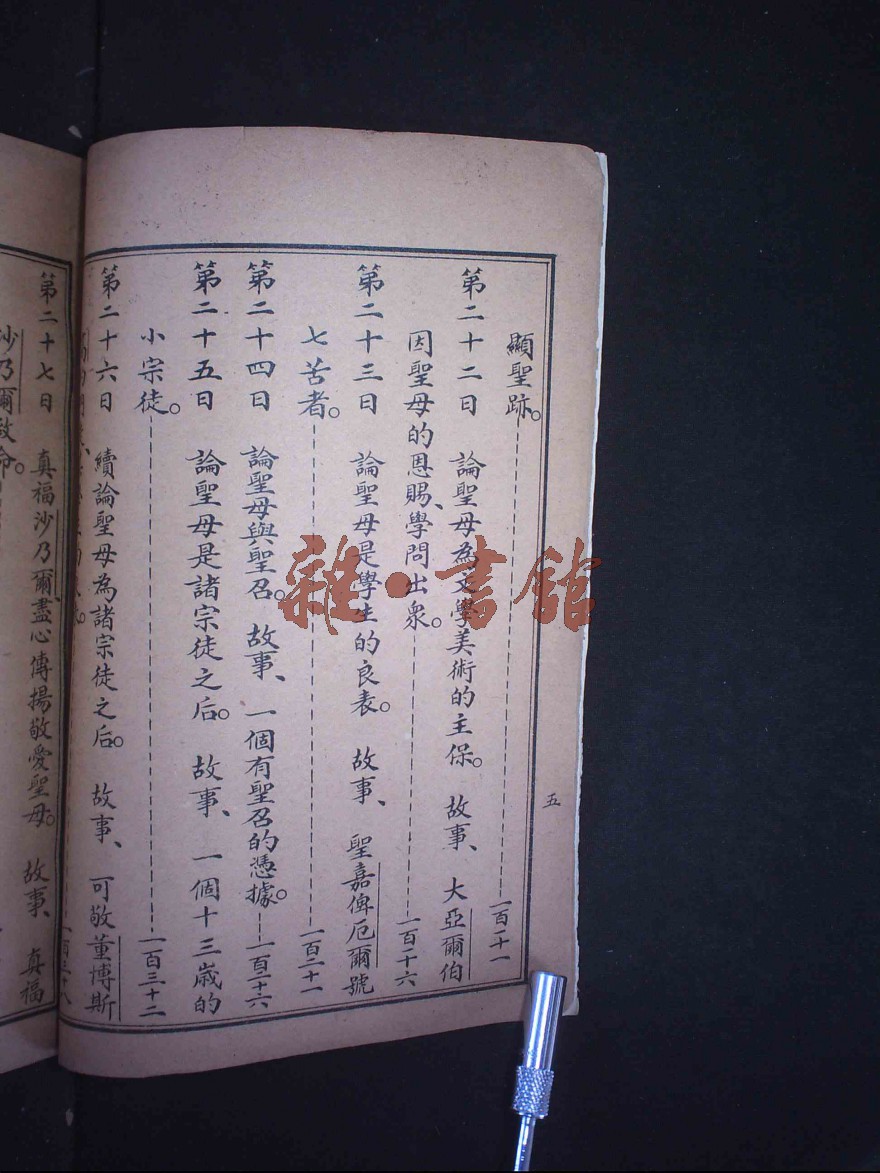 顯聖跡。一百二十一
第二十二日　論聖母為文學美術的主保。故事、大亞爾伯
因聖母的恩賜、學問出衆。一百二十六
第二十三日　論聖母是學生的良表。故事、聖嘉俾厄爾號
七苦者。一百三十一
第二十四日　論聖母與聖召。故事、一個有聖召的憑據。
第二十五日　論聖母是諸宗徒之后。故事、一個十三歲的
小宗徒。
第二十六日　續論聖母為諸宗徒之后。故事、可敬董博斯
第二十七日　真福沙乃爾盡心傳揚敬愛聖母。故事、真福
沙乃爾致命。
五
雜·書館